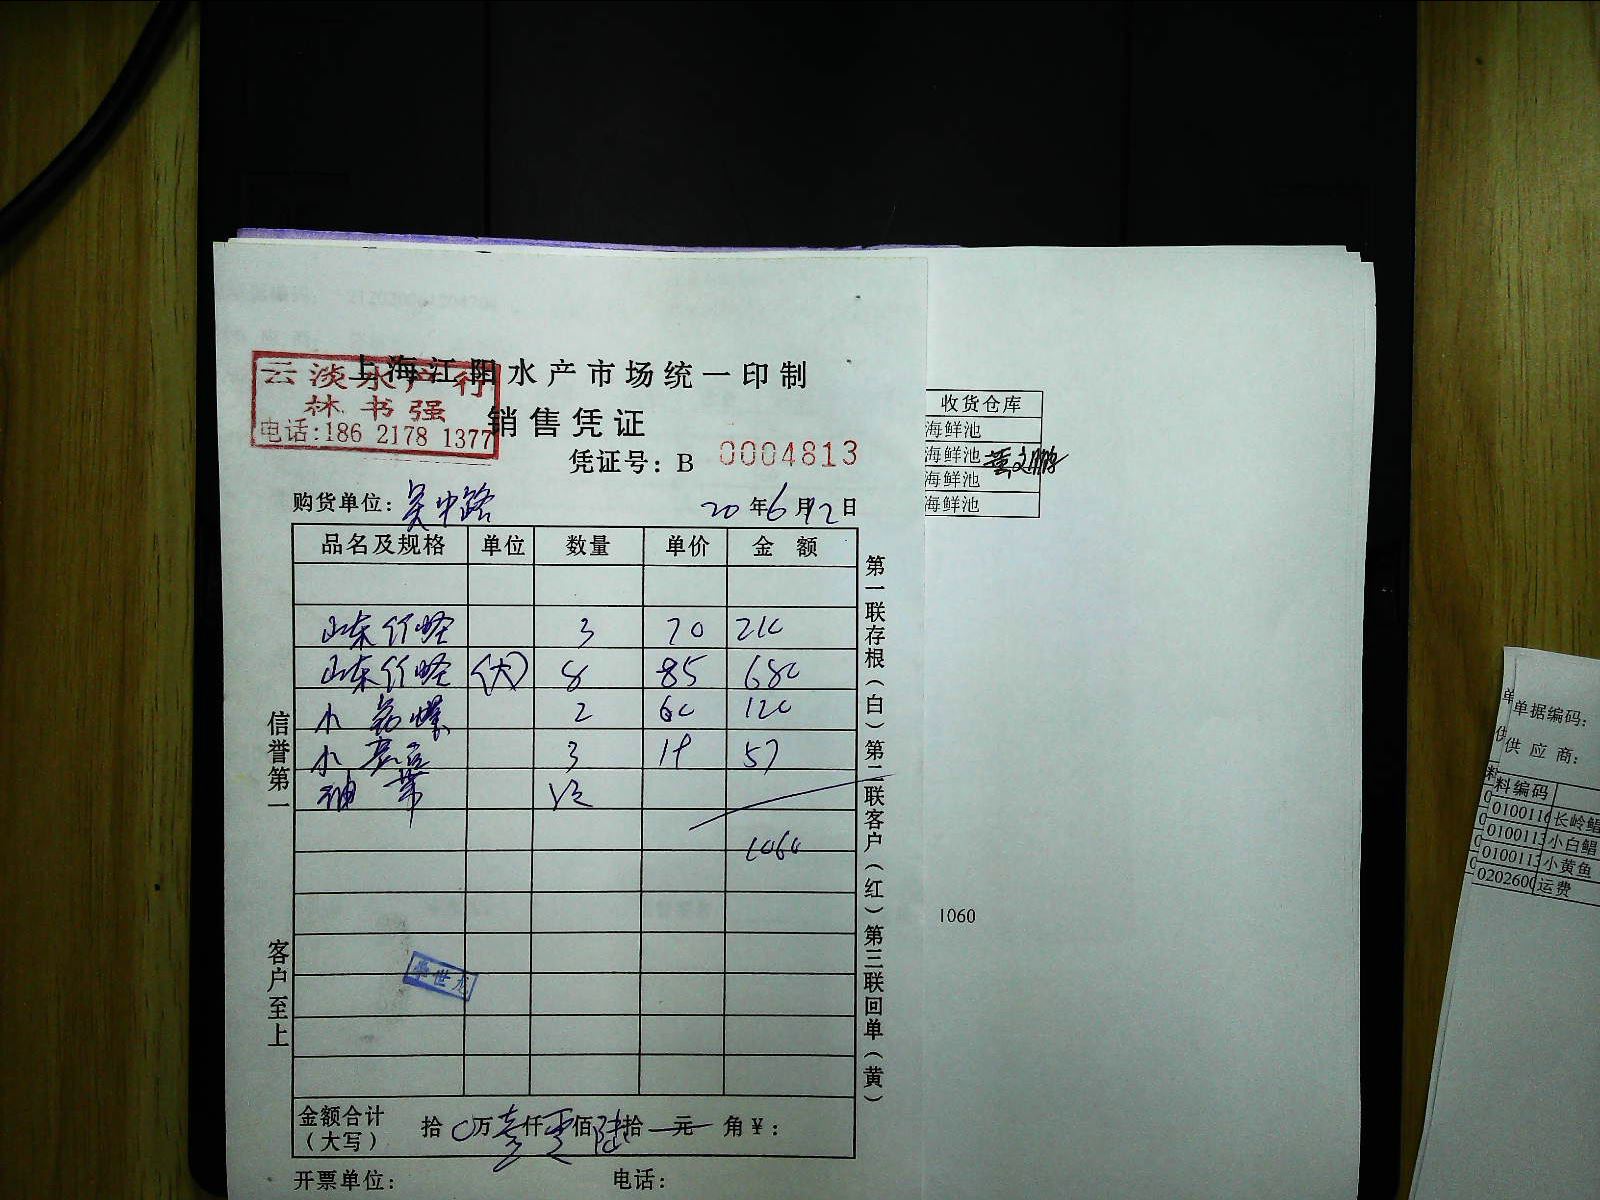 上海江阳水产市场统一印制
云淡水产行
林书强
电话:186 2178 1377
销售凭证
凭证号：B 0004813
购货单位：吴中路 20年6月12日
品名及规格 单位 数量 单价 金额
山东竹蛏 3 70 210
山东竹蛏 (大) 8 85 680
小 螺 2 60 120
小 3 19 57
1060
金额合计
（大写） 拾0万壹仟零佰陆拾元 角￥：
开票单位： 电话：
信誉第一
客户至上
第一联存根（白）第二联客户（红）第三联回单（黄）
世龙
收货仓库
海鲜池
海鲜池
海鲜池
海鲜池
1060
单据编码：
供应商：
料编码
010011 长岭鲳
010011 小白鲳
010011 小黄鱼
020260 运费